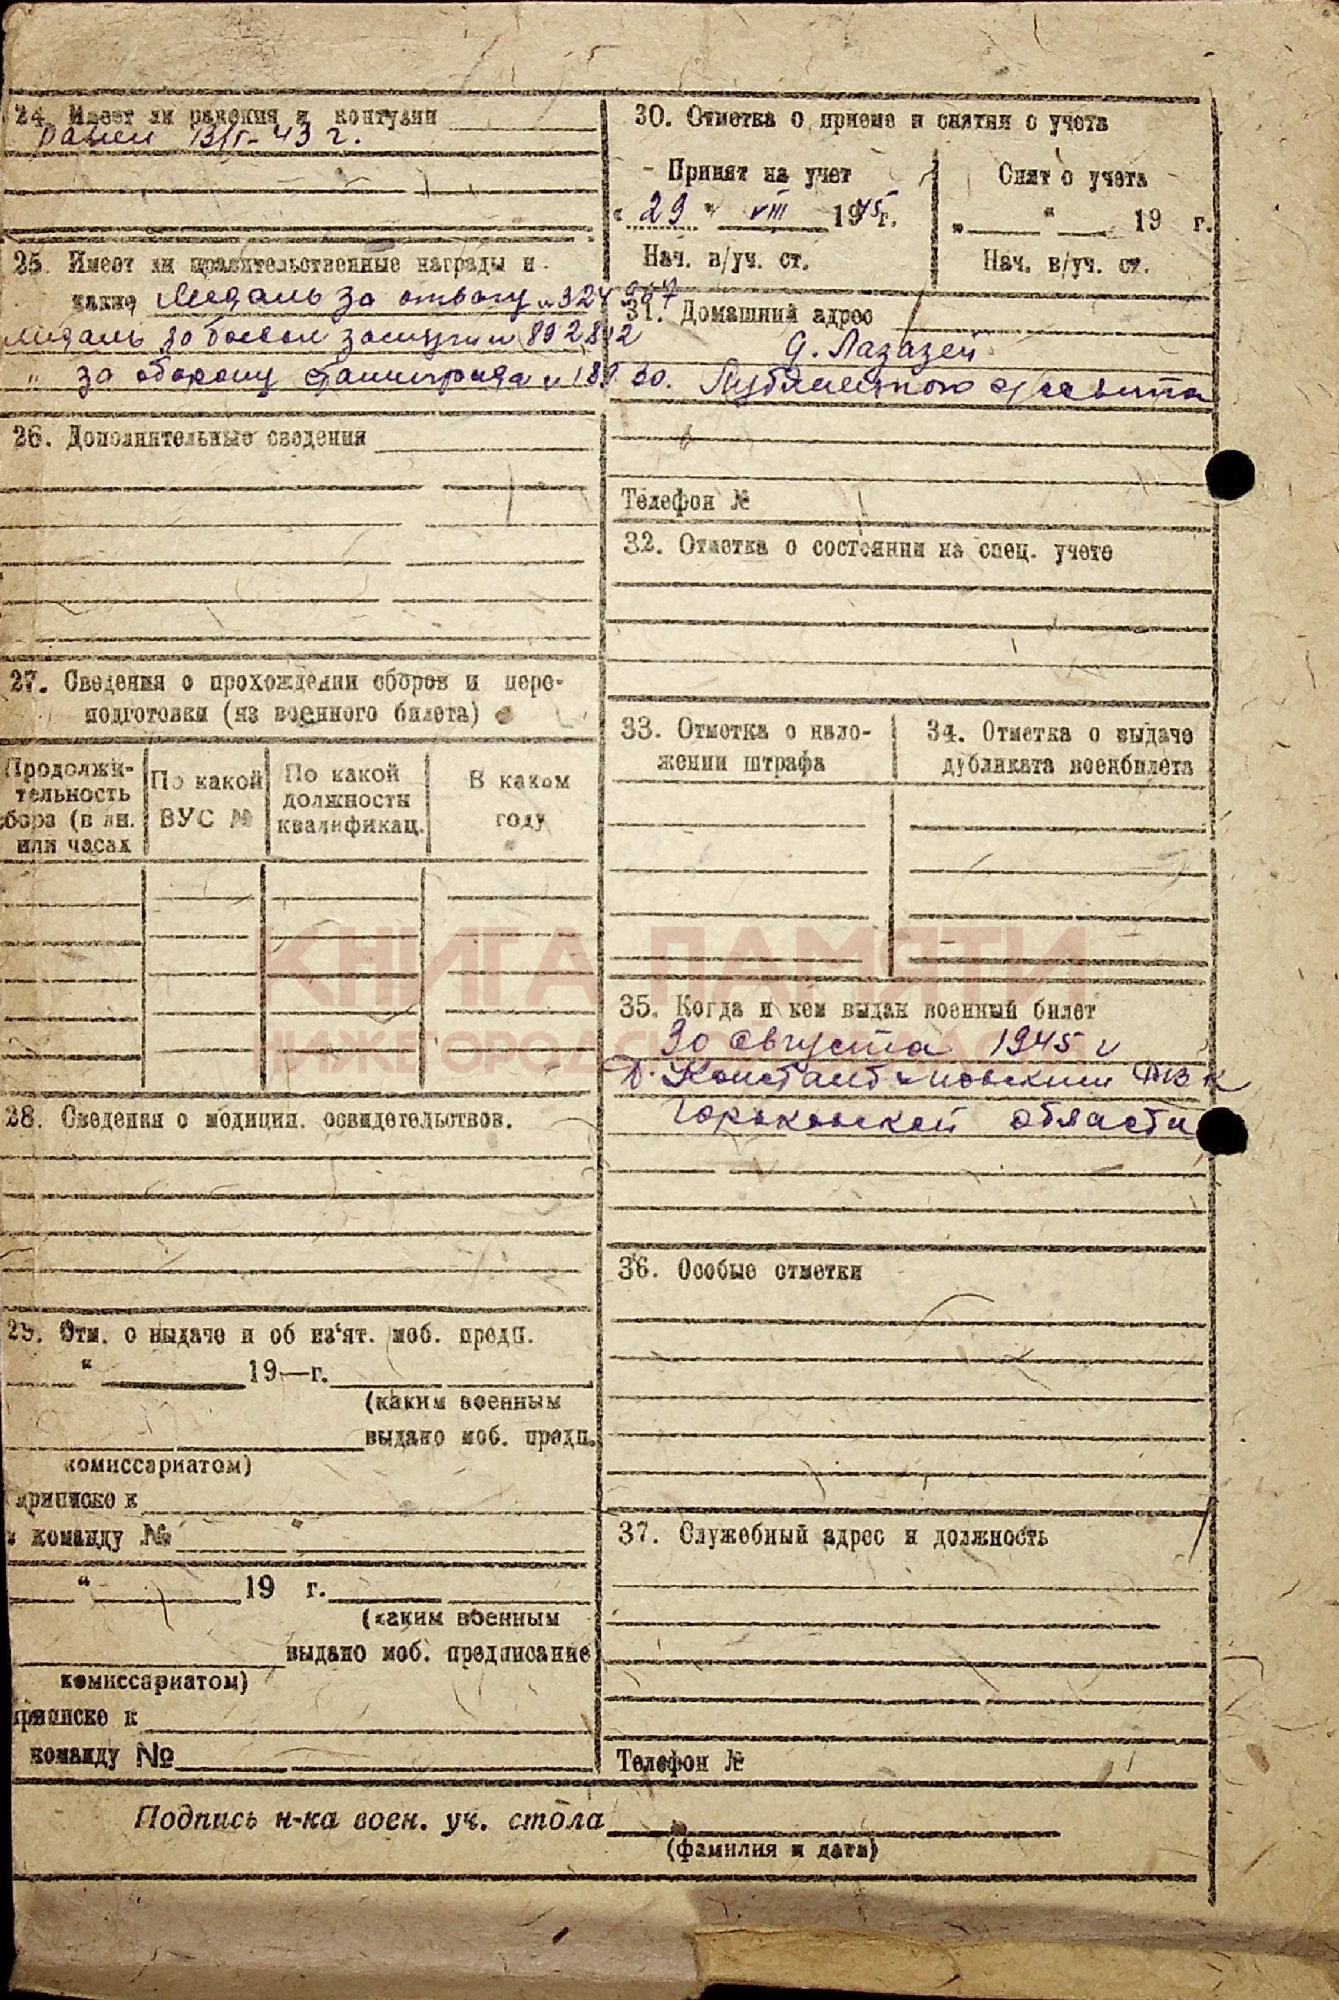 24. Имеет ли ранения и контузии
ранен 13/I-43 г.
25. Имеет ли правительственные награды и
какие Медаль за отвагу № 324967
Медаль за боевые заслуги № 892842
" за оборону Сталинграда №
26. Дополнительные сведения
27. Сведения о прохождении сборов и пере-
подготовки (из военного билета)
Продолжи-
тельность
сбора (в дн.
или часах
По какой
ВУС №
По какой
должности
квалификац.
В каком
году
28. Сведения о медицин. освидетельствов.
29. Отм. о выдаче и об из'ят. моб. предп.
" 19—г.
(каким военным
выдано моб. предп.
комиссариатом)
приписке к
команду №
" 19 г.
(каким военным
выдано моб. предписание
комиссариатом)
приписке к
команду №
30. Отметка о приеме и снятии с учета
Принят на учет
" 29 " VIII 1945г.
Нач. в/уч. ст.
Снят с учета
„ " 19 г.
Нач. в/уч. ст.
31. Домашний адрес
д. Лазазей
сельсовета
Телефон №
32. Отметка о состоянии на спец. учете
33. Отметка о нало-
жении штрафа
34. Отметка о выдаче
дубликата военбилета
35. Когда и кем выдан военный билет
30 августа 1945 г
Д. Константиновским РВК
Горьковской области
36. Особые отметки
37. Служебный адрес и должность
Телефон №
Подпись н-ка воен. уч. стола
(фамилия и дата)
КНИГА ПАМЯТИ
НИЖЕГОРОДСКОЙ ОБЛАСТИ